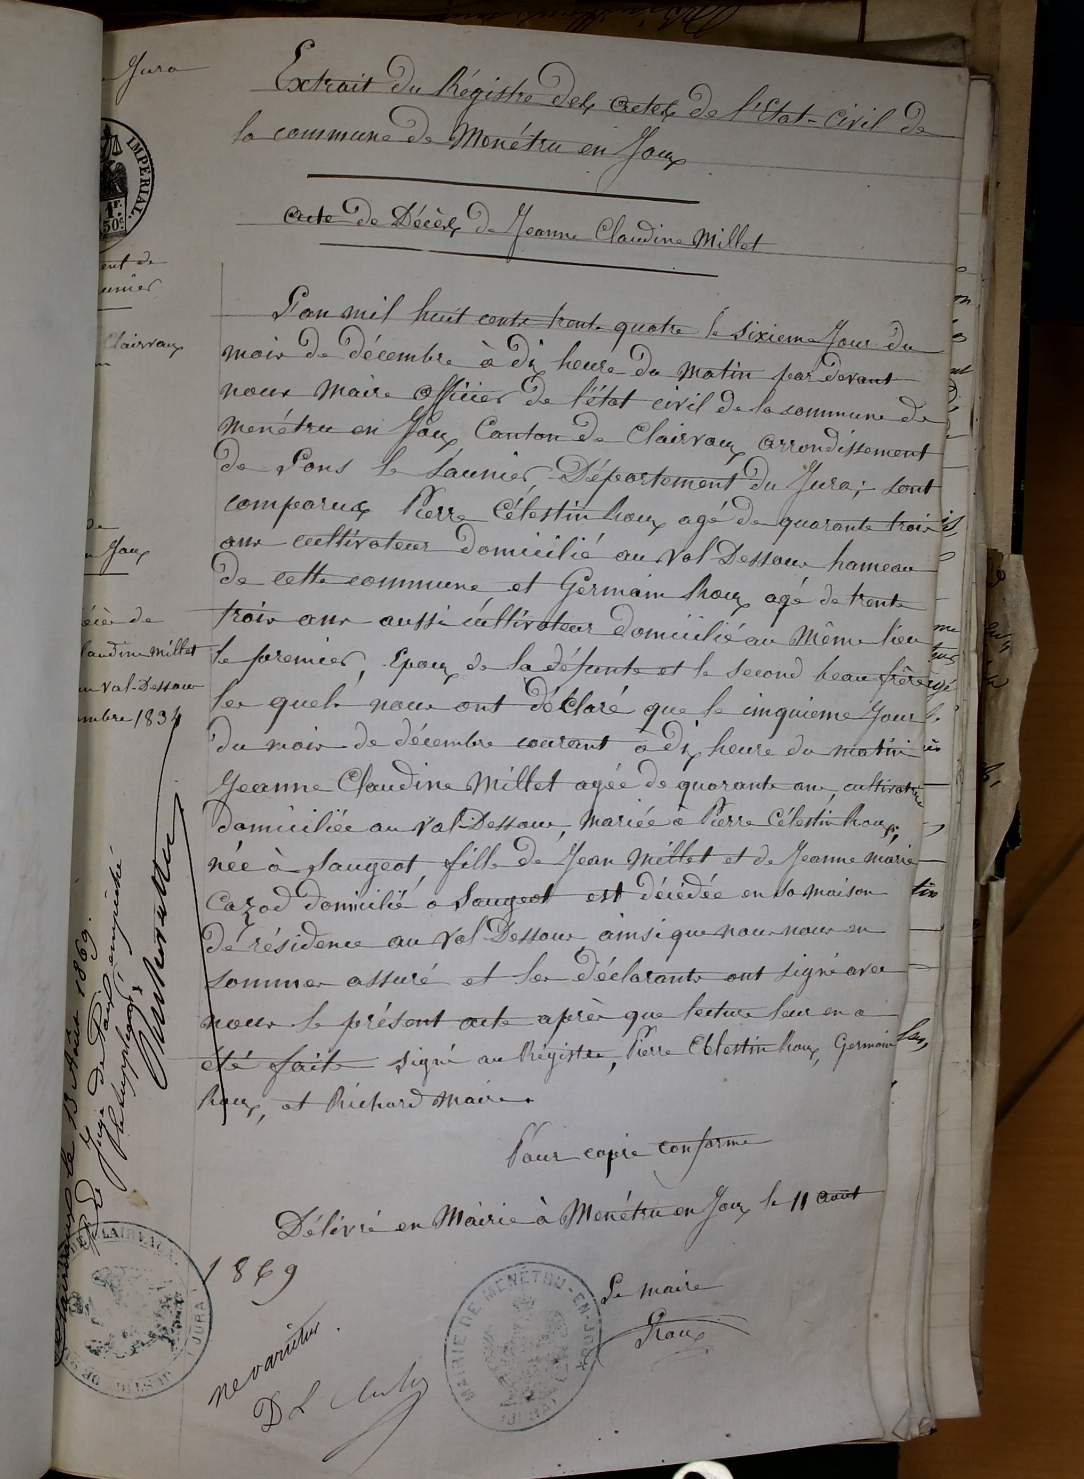 Jura
Extrait du Régistre des actes de l'Etat-Civil de
la commune de Monétru en Joux
IMPERIAL.
1F.
50c
acte de Décès de Jeanne Claudine Millet
ent de
unier
Clairvaux
de
n Joux
écès de
laudine Millet
au Val-Dessous
mbre 1834
L'an mil huit cents trente quatre le sixieme Jour du
mois de décembre à dix heure du matin par devant
nous Maire officier de l'état civil de la commune de
menétru en Joux Canton de Clairvaux arrondissement
de Lons le Saunier, Département du Jura; sont
comparux Pierre Célestin Roux agé de quarante trois
ans cultivateur domicilié au Val Dessous hameau
de cette commune, et Germain Roux agé de trente
trois ans aussi cultivateur domicilié au Même lieu
le premier, Epoux de la défunte et le second beau frère
les quels nous ont déclaré que le cinquieme Jour
du mois de décembre courant à dix heure du matin
Jeanne Claudine Millet agée de quarante ans, cultivatrice
domiciliée au Val-Dessous, mariée à Pierre Célestin Roux,
née à Saugeot, fille de Jean Millet et de Jeanne Marie
Cazod domicilié à Saugeot est décédée en sa maison
de résidence au Val Dessous ainsi que nous nous en
sommes assuré et les déclarants ont signé avec
nous le présent acte après que lecture leur en a
été faite signé au Régistre, Pierre Célestin Roux, Germain
Roux, et Richard Maire.
Pour copie conforme
Délivré en Mairie à Menétru en Joux le 11 aout
1869
Le maire
Roux
MAIRIE DE MENÉTRU-EN-JOUX
(JURA)
ne varietur
Clairvaux le 13 Août 1869.
Juge de Paix, empêché
le suppléant,
DE CLAIRVAUX
(JURA)